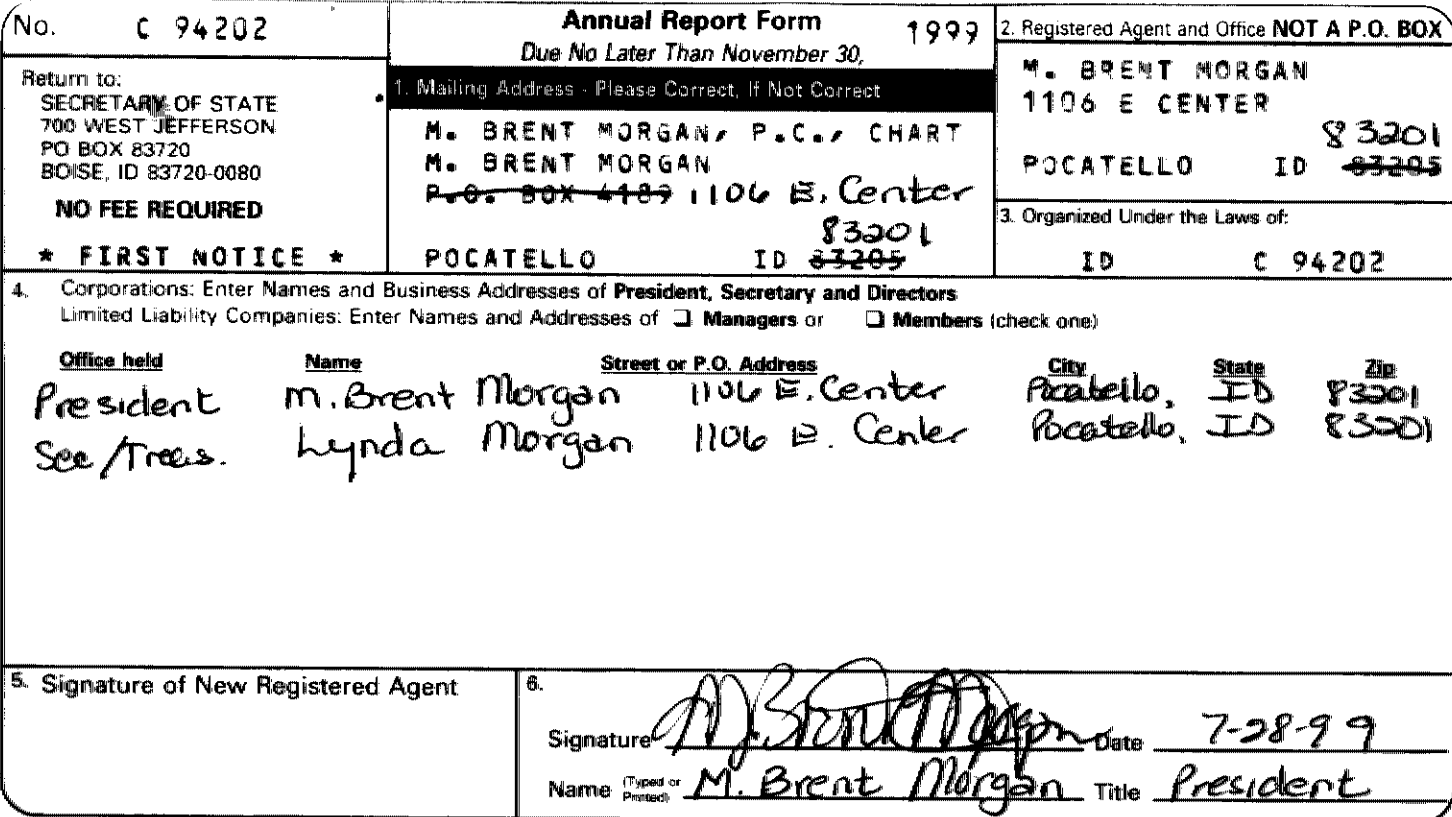 No. C 94202
Annual Report Form 1999
Due No Later Than November 30,
Return to:
SECRETARY OF STATE
700 WEST JEFFERSON
PO BOX 83720
BOISE, ID 83720-0080
NO FEE REQUIRED
* FIRST NOTICE *
1. Mailing Address - Please Correct, If Not Correct
M. BRENT MORGAN, P.C., CHART
M. BRENT MORGAN
P.O. BOX 4189 1106 E. Center
83201
POCATELLO ID 83205
2. Registered Agent and Office NOT A P.O. BOX
M. BRENT MORGAN
1106 E CENTER
83201
POCATELLO ID 83205
3. Organized Under the Laws of:
ID C 94202
4. Corporations: Enter Names and Business Addresses of President, Secretary and Directors
Limited Liability Companies: Enter Names and Addresses of ❑ Managers or ❑ Members (check one)
Office held Name Street or P.O. Address City State Zip
President M. Brent Morgan 1106 E. Center Pocatello, ID 83201
Sec/Treas. Lynda Morgan 1106 E. Center Pocatello, ID 83201
5. Signature of New Registered Agent
6.
Signature M. Brent Morgan Date 7-28-99
Name (Typed or Printed) M. Brent Morgan Title President